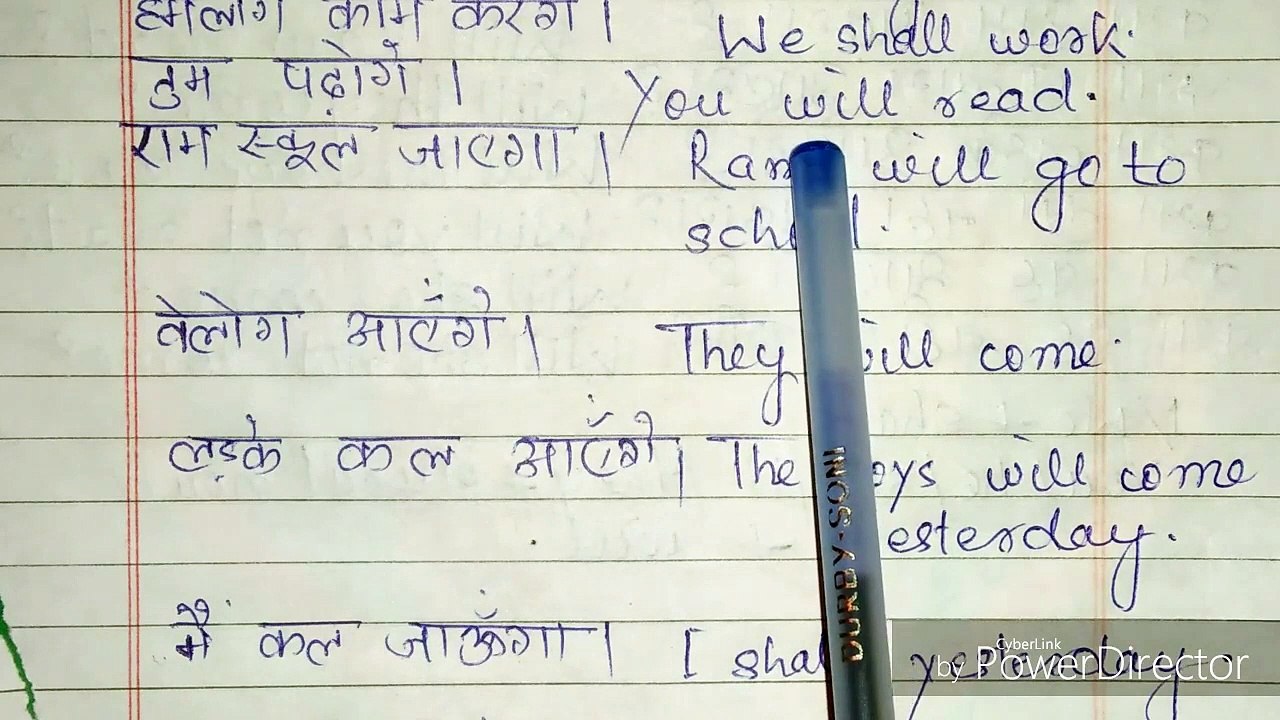 हमलोग काम करेंगे। We shall work.
तुम पढ़ोगे। You will read.
राम स्कूल जाएगा। Ram will go to
school.
वेलोग आएँगे। They will come.
लड़के कल आएँगे। The boys will come
yesterday.
मैं कल जाऊँगा। I shall yesterday.
DURABY-SONI
CyberLink
by PowerDirector